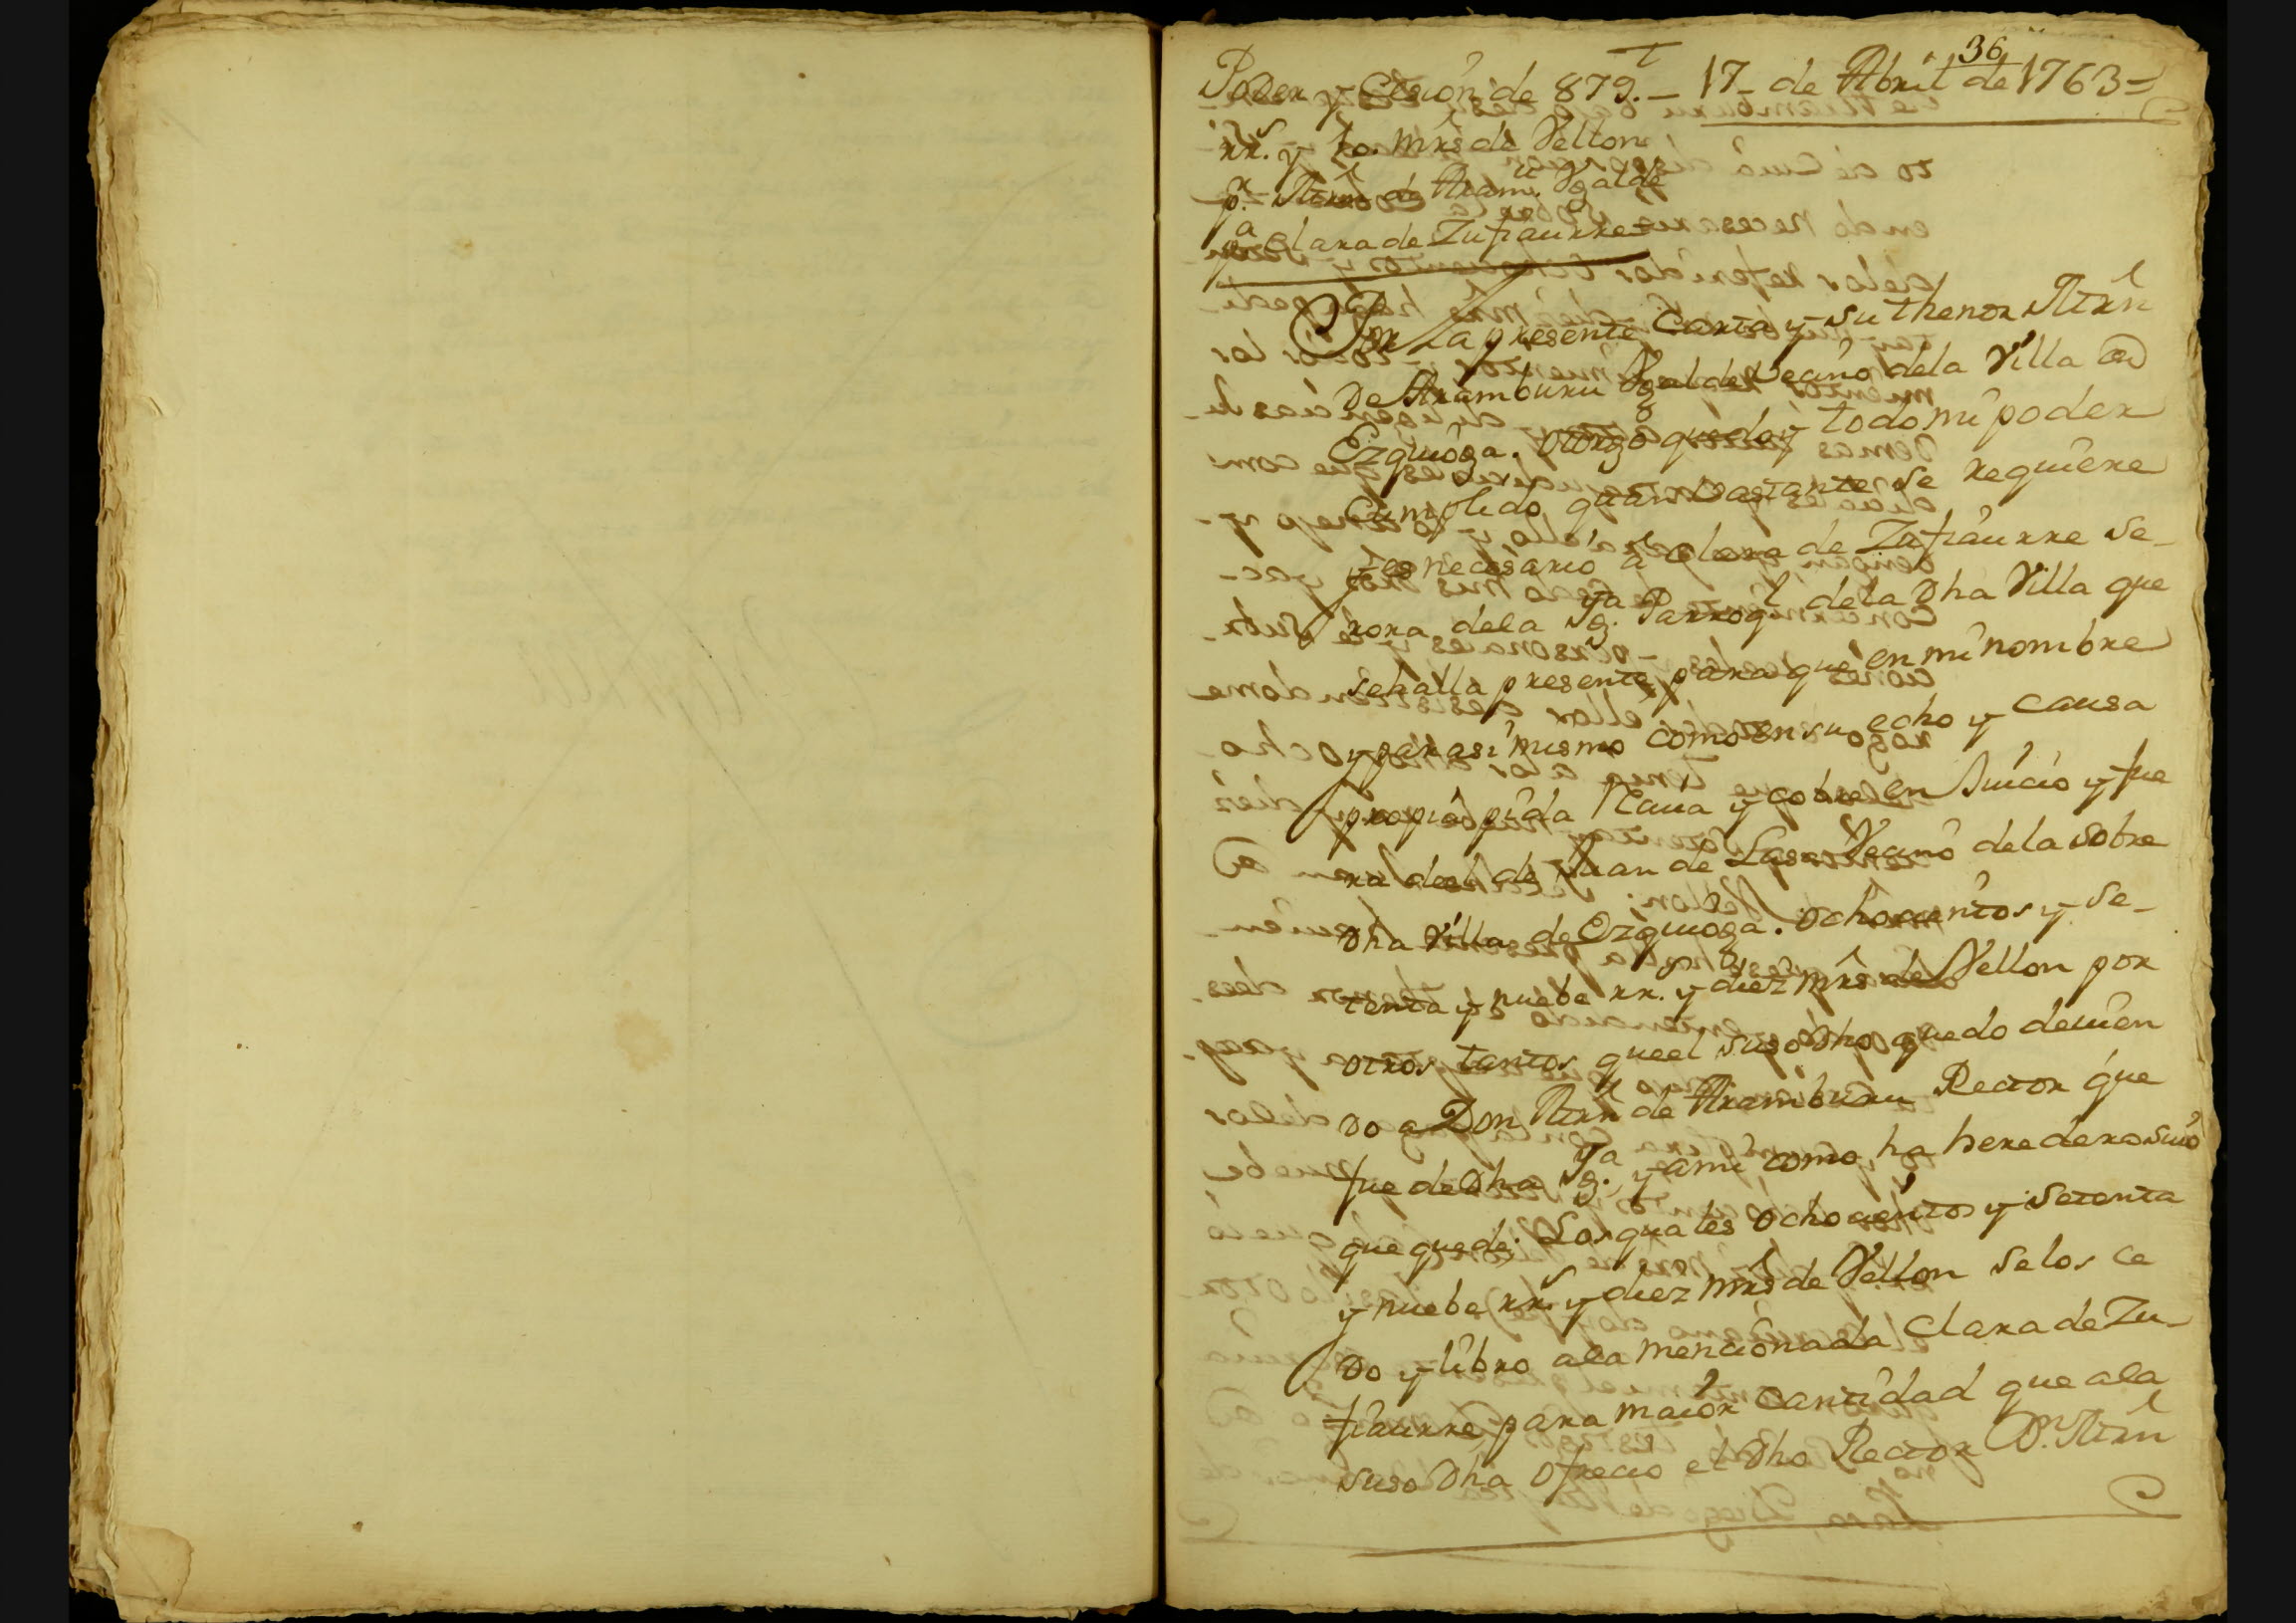 36
Poder y Cesion de 879. — 17 — de Abril de 1763 =
rr.s y 10. mrs de Vellon
p.r Mrn de Aram.u Ygalde
p.a Clara de Zufiaurre
Por La presente Carta y su thenor Mrn
De Aramburu Ygalde Vecino dela Villa de
Ezquioga. otorgo que doy todo mi poder
Cumplido quan Bastante se requiere
y es necesario a Clara de Zufiaurre Se-
rora dela Yg.a Parroq.l dela Dha Villa que
sehalla presente, para que en mi nombre
y para si mismo como en su echo y Causa
propia pida Reciva y cobre en Juicio y fue
ra del de Juan de Lasa Vecino dela sobre
Dha Villa de Ezquioga. ochocientos y se-
tenta y nuebe rr.s y diez mrs de Vellon por
otros tantos queel suso Dho quedo devien
Do a Don Mrn de Aramburu Rector que
fue de Dha Yg.a y ami como ha heredero suio
que quede; Losquales ochocientos y setenta
y nuebe rr.s y diez mrs de Vellon selos ce
Do y libro ala mencionada Clara de Zu-
fiaurre para maior Cantidad que ala
suso Dha ofrecio el Dho Rector D.n Mrn